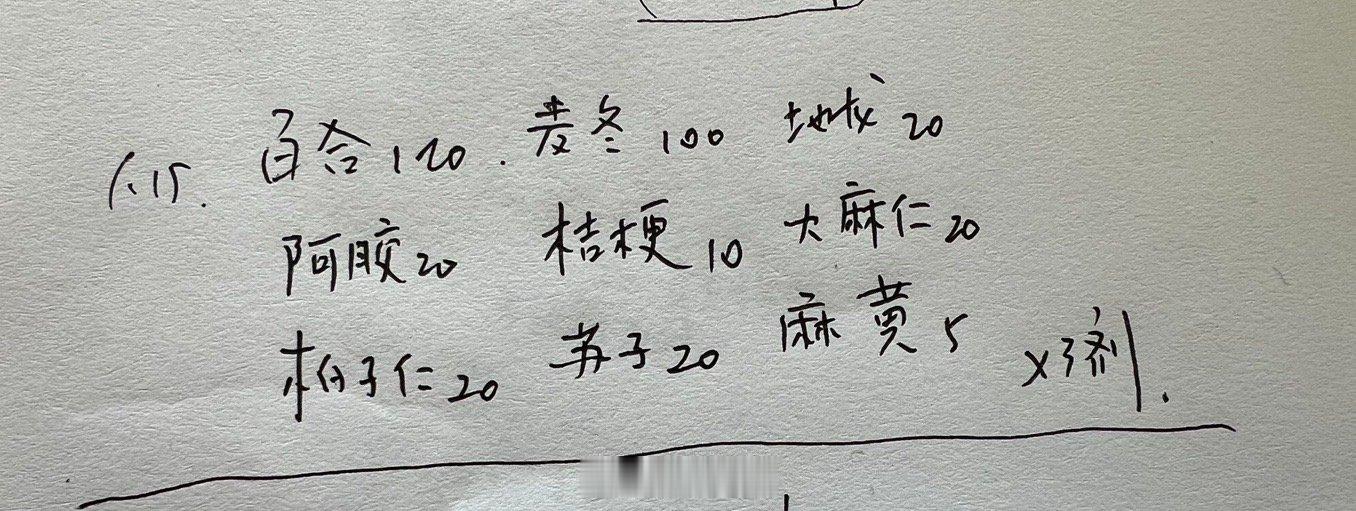 百合120. 麦冬100 地龙20
阿胶20 桔梗10 大麻仁20
柏子仁20 苏子20 麻黄5 x3剂.